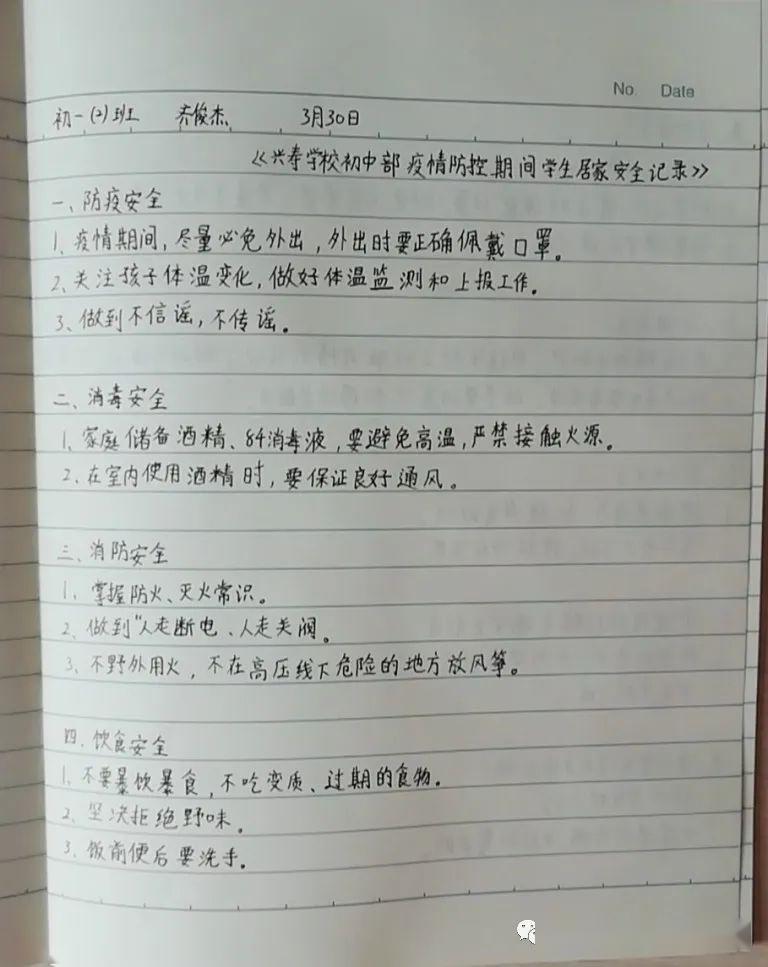 No. Date
初一(2)班 齐俊杰 3月30日
《兴寿学校初中部疫情防控期间学生居家安全记录》
一、防疫安全
1、疫情期间,尽量必免外出,外出时要正确佩戴口罩。
2、关注孩子体温变化,做好体温监测和上报工作。
3、做到不信谣,不传谣。
二、消毒安全
1、家庭储备酒精、84消毒液,要避免高温,严禁接触火源。
2、在室内使用酒精时,要保证良好通风。
三、消防安全
1、掌握防火、灭火常识。
2、做到“人走断电、人走关阀。
3、不野外用火,不在高压线下危险的地方放风筝。
四、饮食安全
1、不要暴饮暴食,不吃变质、过期的食物。
2、坚决拒绝野味。
3、饭前便后要洗手。